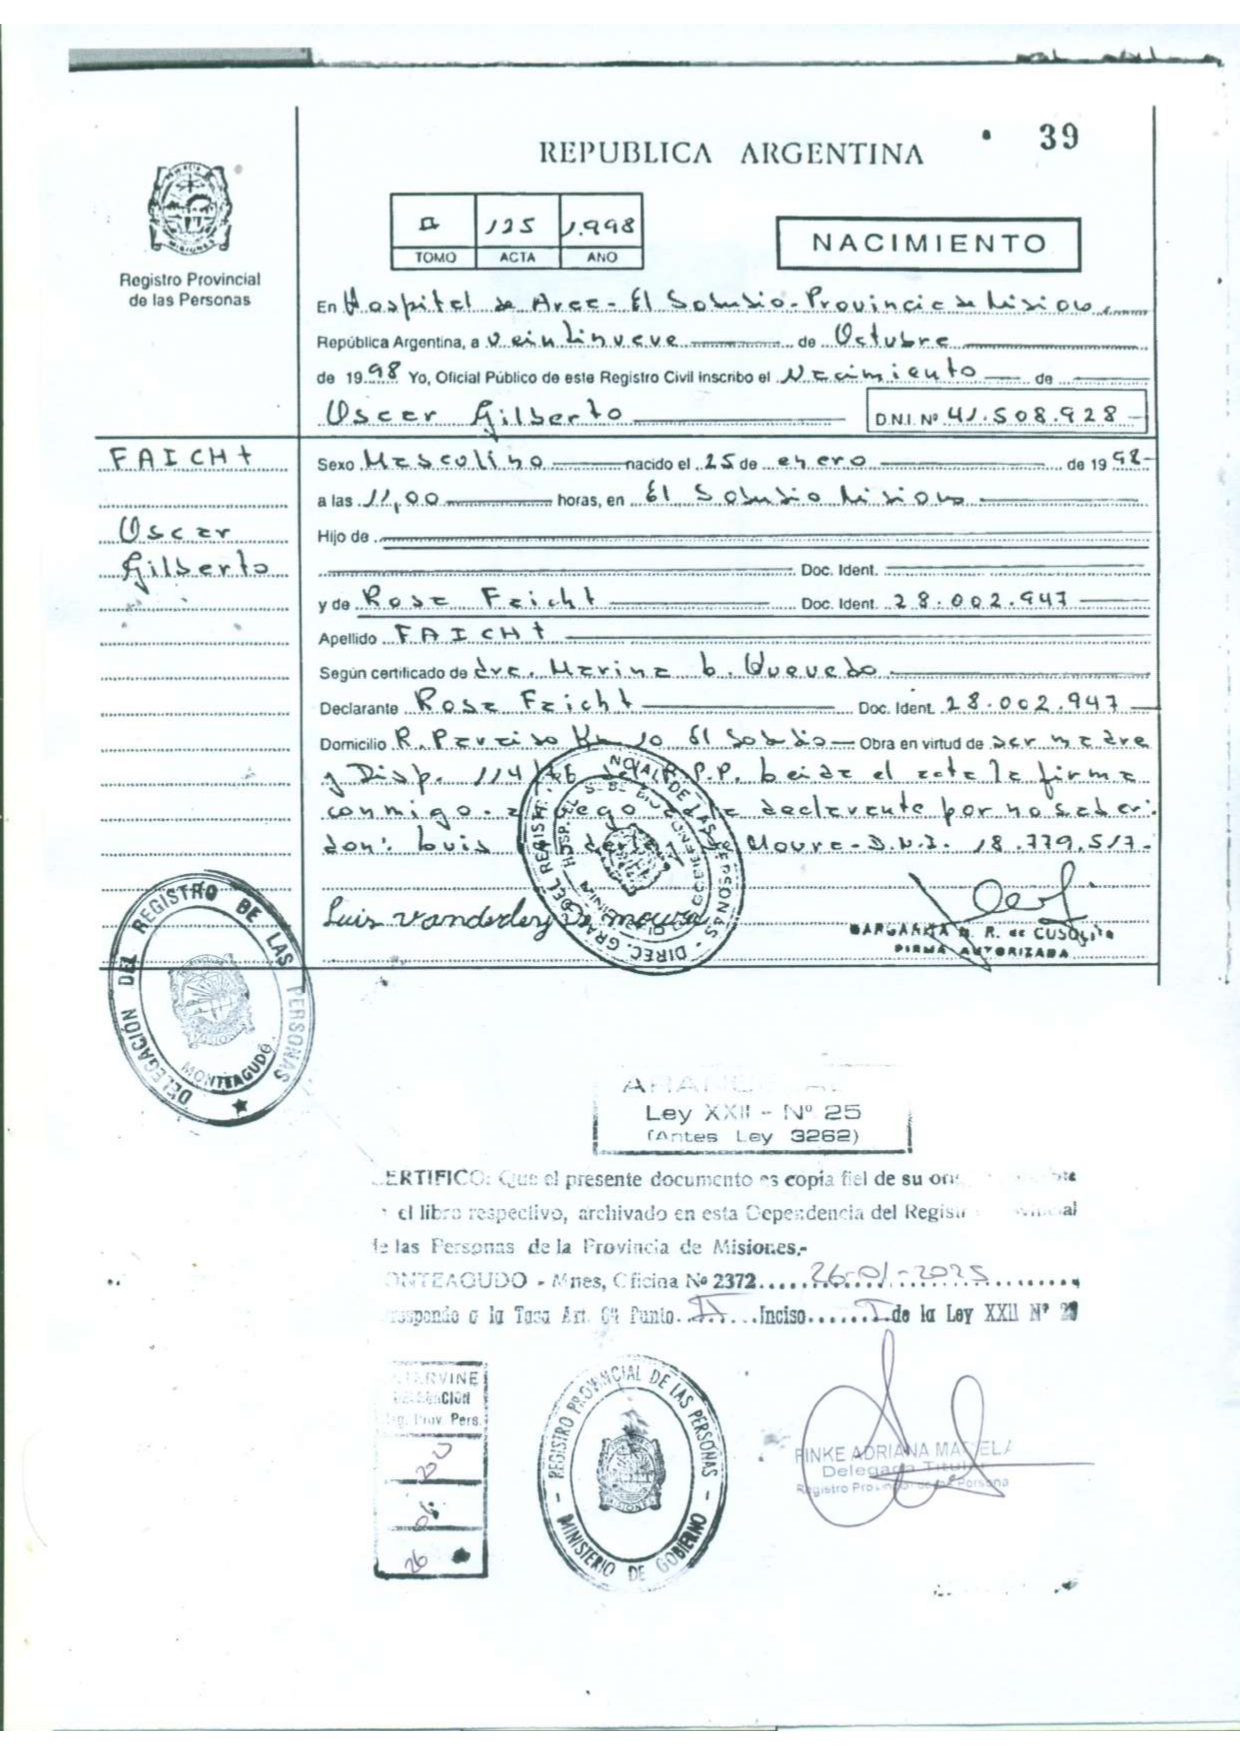 39
REPUBLICA ARGENTINA
II 125 1.998
TOMO ACTA AÑO
NACIMIENTO
Registro Provincial
de las Personas
En Hospital de Area - El Soberbio - Provincia de Misiones
República Argentina, a veintinueve de Octubre
de 1998 Yo, Oficial Público de este Registro Civil inscribo el Nacimiento de
Oscar Gilberto D.N.I. Nº 41.508.928
FAICHT
Oscar
Gilberto
Sexo Masculino nacido el 25 de enero de 1998
a las 11,00 horas, en El Soberbio Misiones
Hijo de
Doc. Ident.
y de Rosa Faicht Doc. Ident. 28.002.947
Apellido FAICHT
Según certificado de dra. Marina Quevedo
Declarante Rosa Faicht Doc. Ident. 28.002.947
Domicilio R. Paraiso Km 10 El Soberbio Obra en virtud de ser madre
y Disp. 114/ R.P.P. Leida el acta la firma
conmigo a ruego declarante por no saber
don: Luis Moura - D.N.I. 18.779.517-
Luis Vanderley De moura
MARGARITA R. de CUSOLITO
FIRMA AUTORIZADA
DIREC. GRAL. DEL REGISTRO PROVINCIAL DE LAS PERSONAS
DELEGACIÓN DEL REGISTRO DE LAS PERSONAS
MONTEAGUDO
Ley XXII - Nº 25
(Antes Ley 3262)
CERTIFICO: Que el presente documento es copia fiel de su
el libro respectivo, archivado en esta Dependencia del Registro Provincial
de las Personas de la Provincia de Misiones.-
MONTEAGUDO - Mnes, Oficina Nº 2372 26-01-2025
a la Tasa Art. Punto II Inciso I de la Ley XXII Nº
INTERVINE
DELEGACION
Reg. Prov. Pers.
26
REGISTRO PROVINCIAL DE LAS PERSONAS
MINISTERIO DE GOBIERNO
MISIONES
FINKE ADRIANA MARIELA
Delegada Titular
Registro Provincial de las Personas